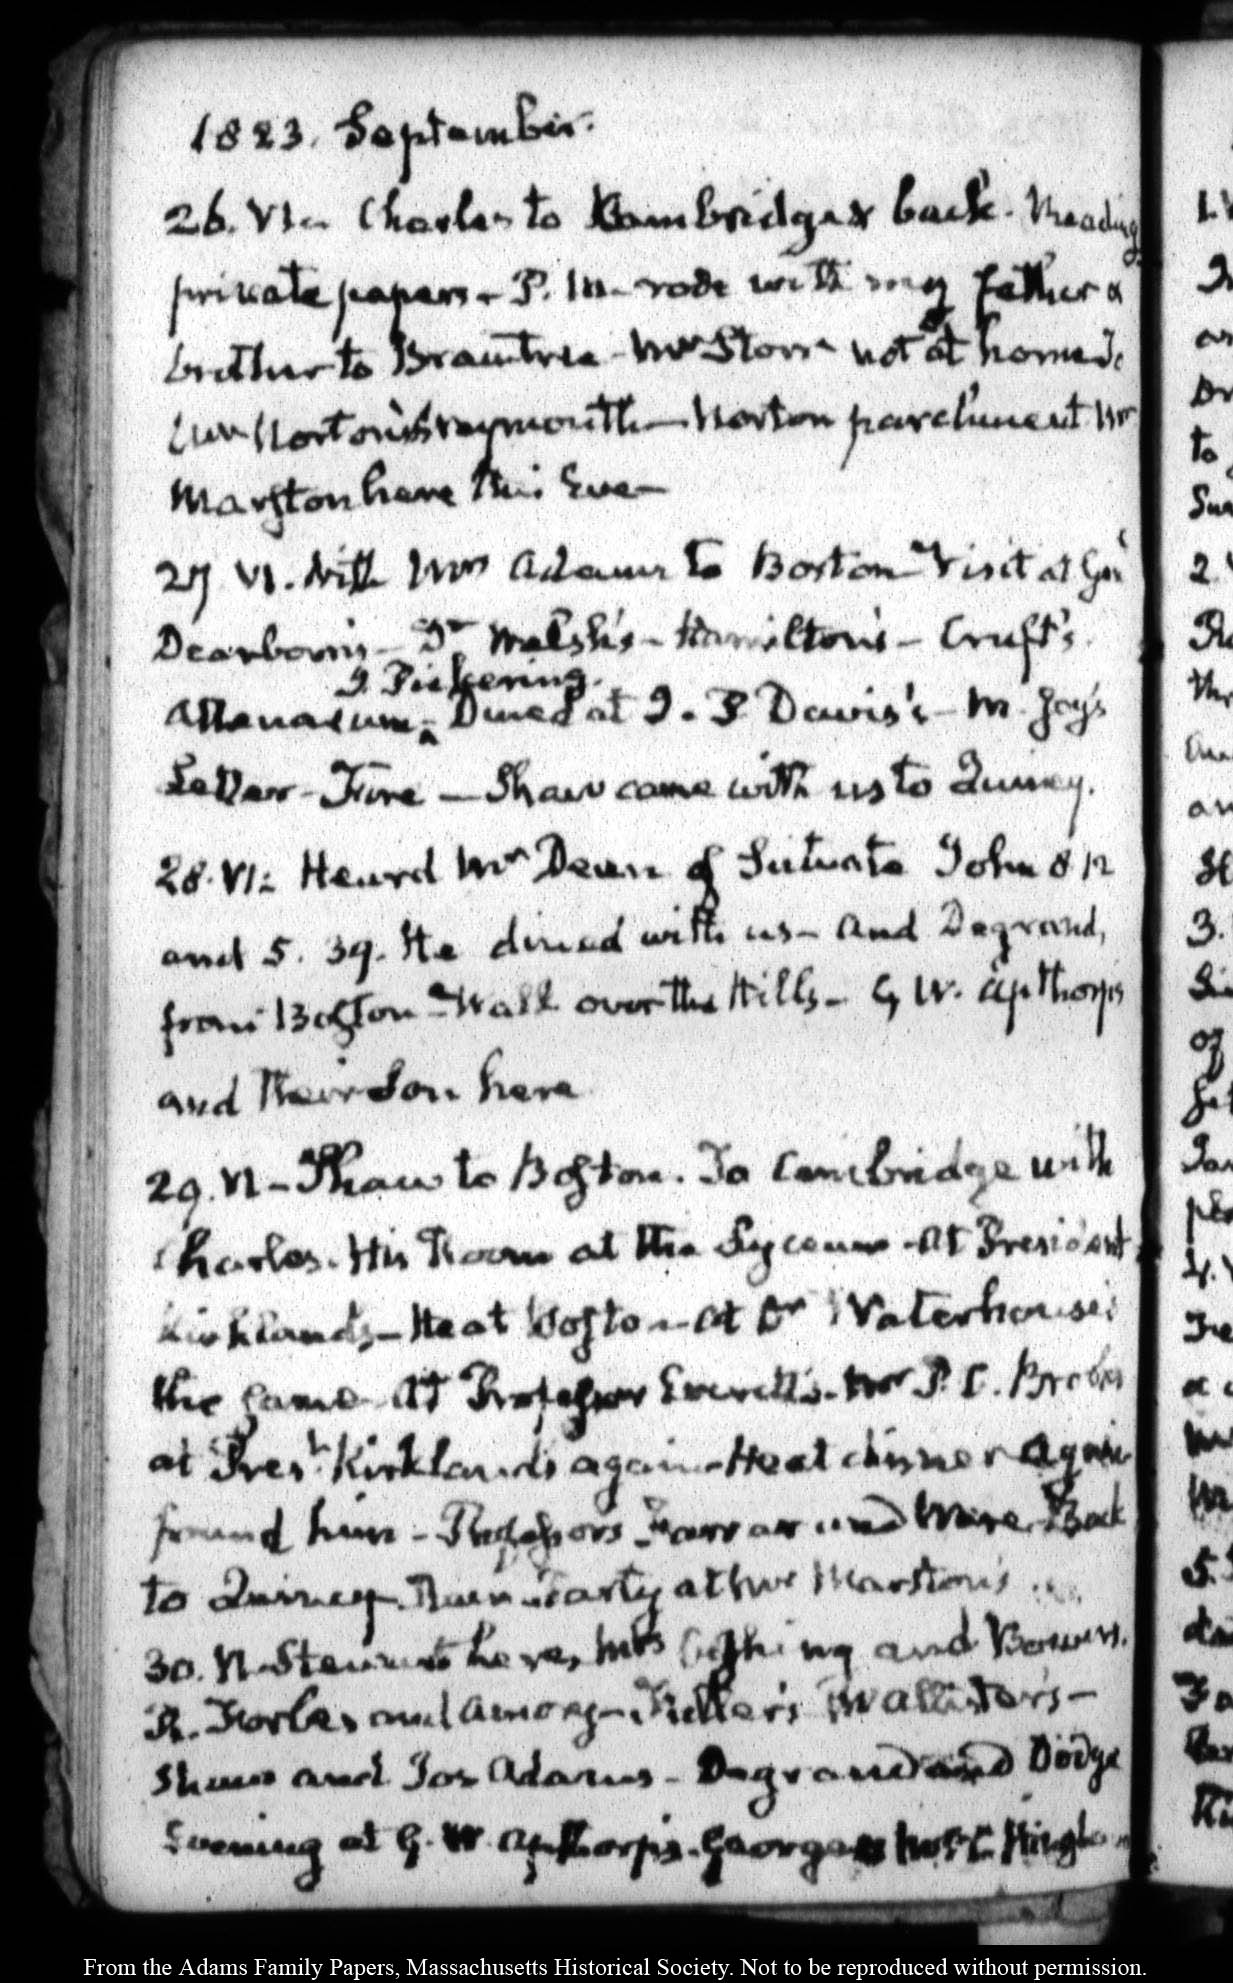 1823. September.
26. VI. Charles to Cambridge & back. Reading
private papers - P. M. rode with my father &
brother to Braintree - Mr Storrs not at home.
Norton's Weymouth - Norton parchment Mr
Marston here this Eve -
27 VI. With Mrs Adams to Boston - Visit at Genl
Dearborn's - Dr Welsh's - Hamilton's - Cruft's
J. Pickering.
Athenaeum - Dined at I. P. Davis's - M. Jay's
Letter - Fire - Shaw came with us to Quincy.
28. VI: Heard Mr Deane of Scituate John 8 12
and 5. 39. He dined with us - and Degrand,
from Boston - Walk over the Hills - G W. Apthorp's
and their Son here
29. VI - Shaw to Boston. To Cambridge with
Charles. His Room at the Lyceum - At President
Kirkland's - He at Boston - at Dr Waterhouse's
the same - At Professor Everett's - Mr P. C. Brooks
at Prest. Kirkland's again - He at dinner Again
found him - Professors Farrar and Ware. Back
to Quincy. Party at Mr Marston's
30. VI. Stewart here, Mrs Cushing and
R. Forbes and Amory - Miller's T. B. Wallister's -
Shaw and Jos Adams - Degrand and Dodge
Evening at G. W. Apthorp's. George Hingham
From the Adams Family Papers, Massachusetts Historical Society. Not to be reproduced without permission.